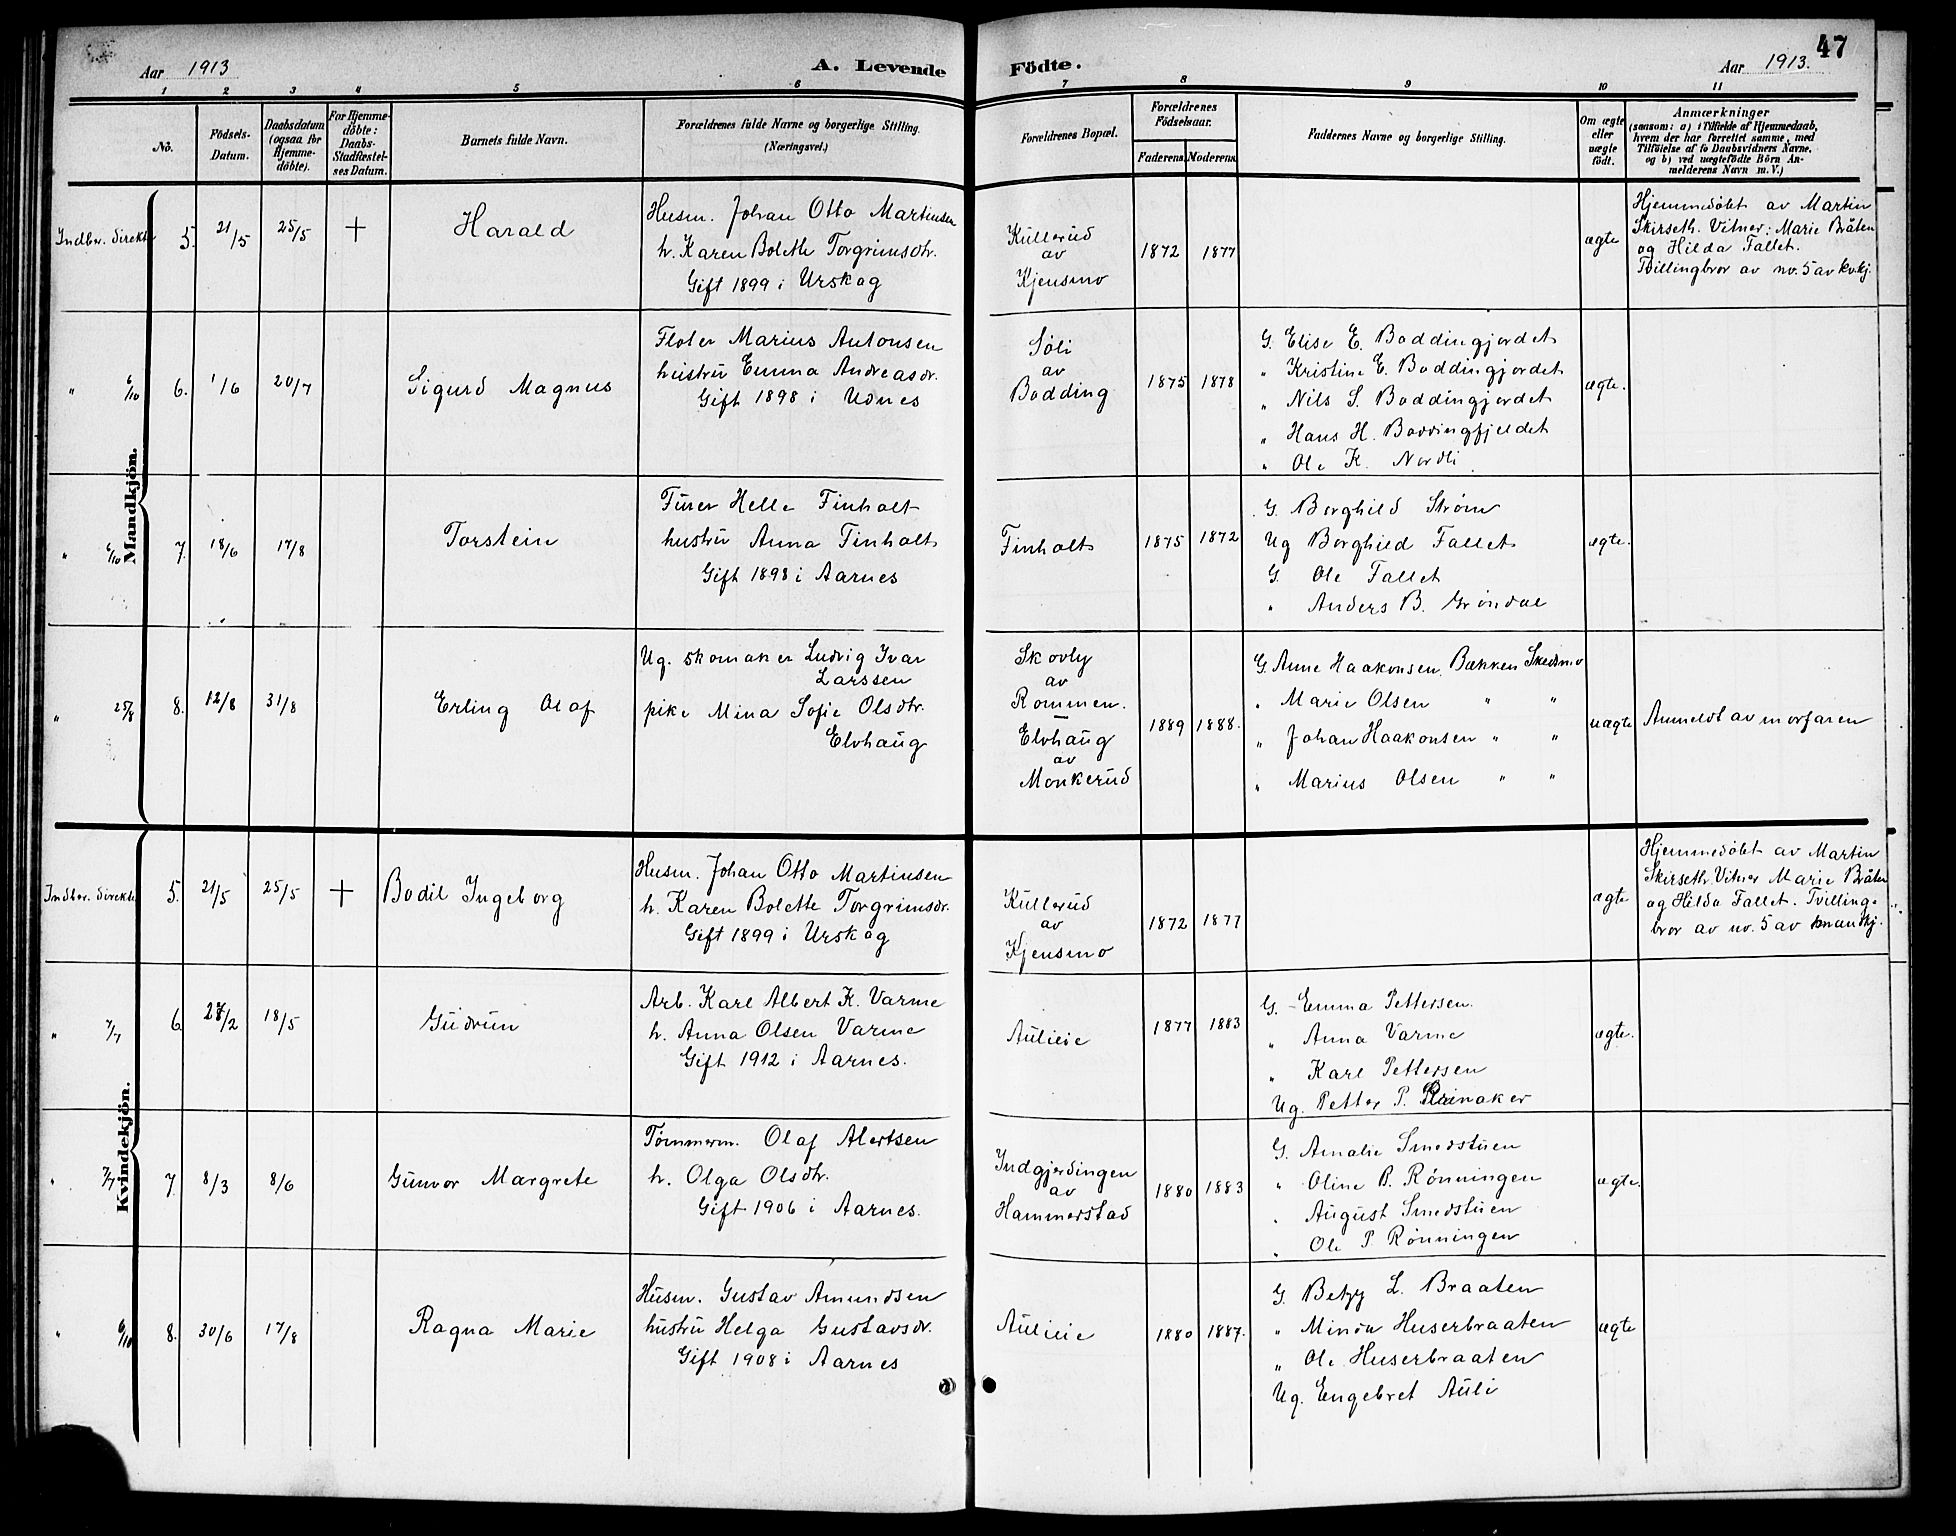 47
Aar 1913
A. Levende
Födte.
Aar 1913.
1 2 3 4 5 6 7 8 9 10 11
No.
Födsels-
Datum.
Daabsdatum
(ogsaa for
Hjemme-
döbte).
For Hjemme-
döbte:
Daabs-
Stadfæstel-
ses Datum.
Barnets fulde Navn.
Forældrenes fulde Navne og borgerlige Stilling.
(Næringsvei.)
Forældrenes Bopæl.
Forældrenes
Födselsaar.
Faderens.
Moderens.
Faddernes Navne og borgerlige Stilling.
Om ægte
eller
uægte
födt.
Anmærkninger
(saasom: a) i Tilfælde af Hjemmedaab,
hvem der har forrettet samme, med
Tilföielse af to Daabsvidners Navne,
og b) ved uægtefödte Börn An-
melderens Navn m. V.)
Mandkjön.
Indber. direkte 5. 21/5 25/5 + Harald
Husm. Johan Otto Martinsen
h. Karen Bolette Torgrimsdtr.
Gift 1899 i Urskog
Kullerud
av
Kjensmo
1872 1877
ægte
Hjemmedøbt av Martin
Skirseth. Vitner: Marie Bråten
og Hilda Fallet.
Tvillingbror av no. 5 av kvkj.
" 6/10 6. 1/6 20/7 Sigurd Magnus
Fløter Marius Antonsen
hustru Emma Andreasdr.
Gift 1898 i Udnes
Søli
av
Bodding
1875 1878
G. Elise E. Boddingjordet
" Kristine E. Boddingjordet
" Nils S. Boddingjordet
" Hans H. Boddingfjeldet
" Ole K. Nordli
ægte.
" 6/10 7. 18/6 17/8 Torstein
Furer Helle Finholt
hustru Anna Finholt
Gift 1898 i Aarnes
Finholt
1875 1872
G. Borghild Strøm
Ug Borghild Fallet
G. Ole Fallet
" Anders B. Grøndal
ægte.
" 25/8 8. 12/8 31/8 Erling Olaf
Ug. skomaker Ludvig Ivar
Larssen
pike Mina Sofie Olsdtr.
Elvhaug
Skovly
av
Rommen.
Elvhaug
av
Monkerud
1889 1888.
G. Anne Haakonsen Bækken Skedsmo
" Marie Olsen " "
" Johan Haakonsen " "
" Marius Olsen " "
uægte
Anmeldt av morfaren
Kvindekjön.
Indber. direkte 5. 21/5 25/5 + Bodil Ingeborg
Husm. Johan Otto Martinsen
h. Karen Bolette Torgrimsdr.
Gift 1899 i Urskog
Kullerud
av
Kjensmo
1872 1877
ægte
Hjemmedøbt av Martin
Skirseth. Vitner Marie Bråten
og Hilda Fallet. Tvilling-
bror av no. 5 av mandkj.
" 7/7 6 /2 18/5 Gudrun
Arb. Karl Albert K. Varme
h. Anna Olsen Varme
Gift 1912 i Aarnes.
Aulieie
1877 1883
G. Emma Pettersen.
" Anna Varme
" Karl Pettersen
Ug. Petter P.
ægte.
" 7/7 7. 8/3 8/6 Gunvor Margrete
Tømmerm. Olaf Alertsen
h. Olga Olsdtr.
Gift 1906 i Aarnes.
Indgjerdingen
av
Hammerstad
1880 1883
G. Amalie Smedstuen
" Oline B. Rønningen
" August Smedstuen
" Ole P. Rønningen
ægte.
" 6/10 8. 30/6 17/8 Ragna Marie
Husm. Gustav Amundsen
hustru Helga Gustavsdr.
Gift 1908 i Aarnes
Aulieie
1880 1887.
G. Betzy L. Braaten
" Minda Huserbraaten
" Ole Huserbraaten
Ug. Engebret Auli
ægte